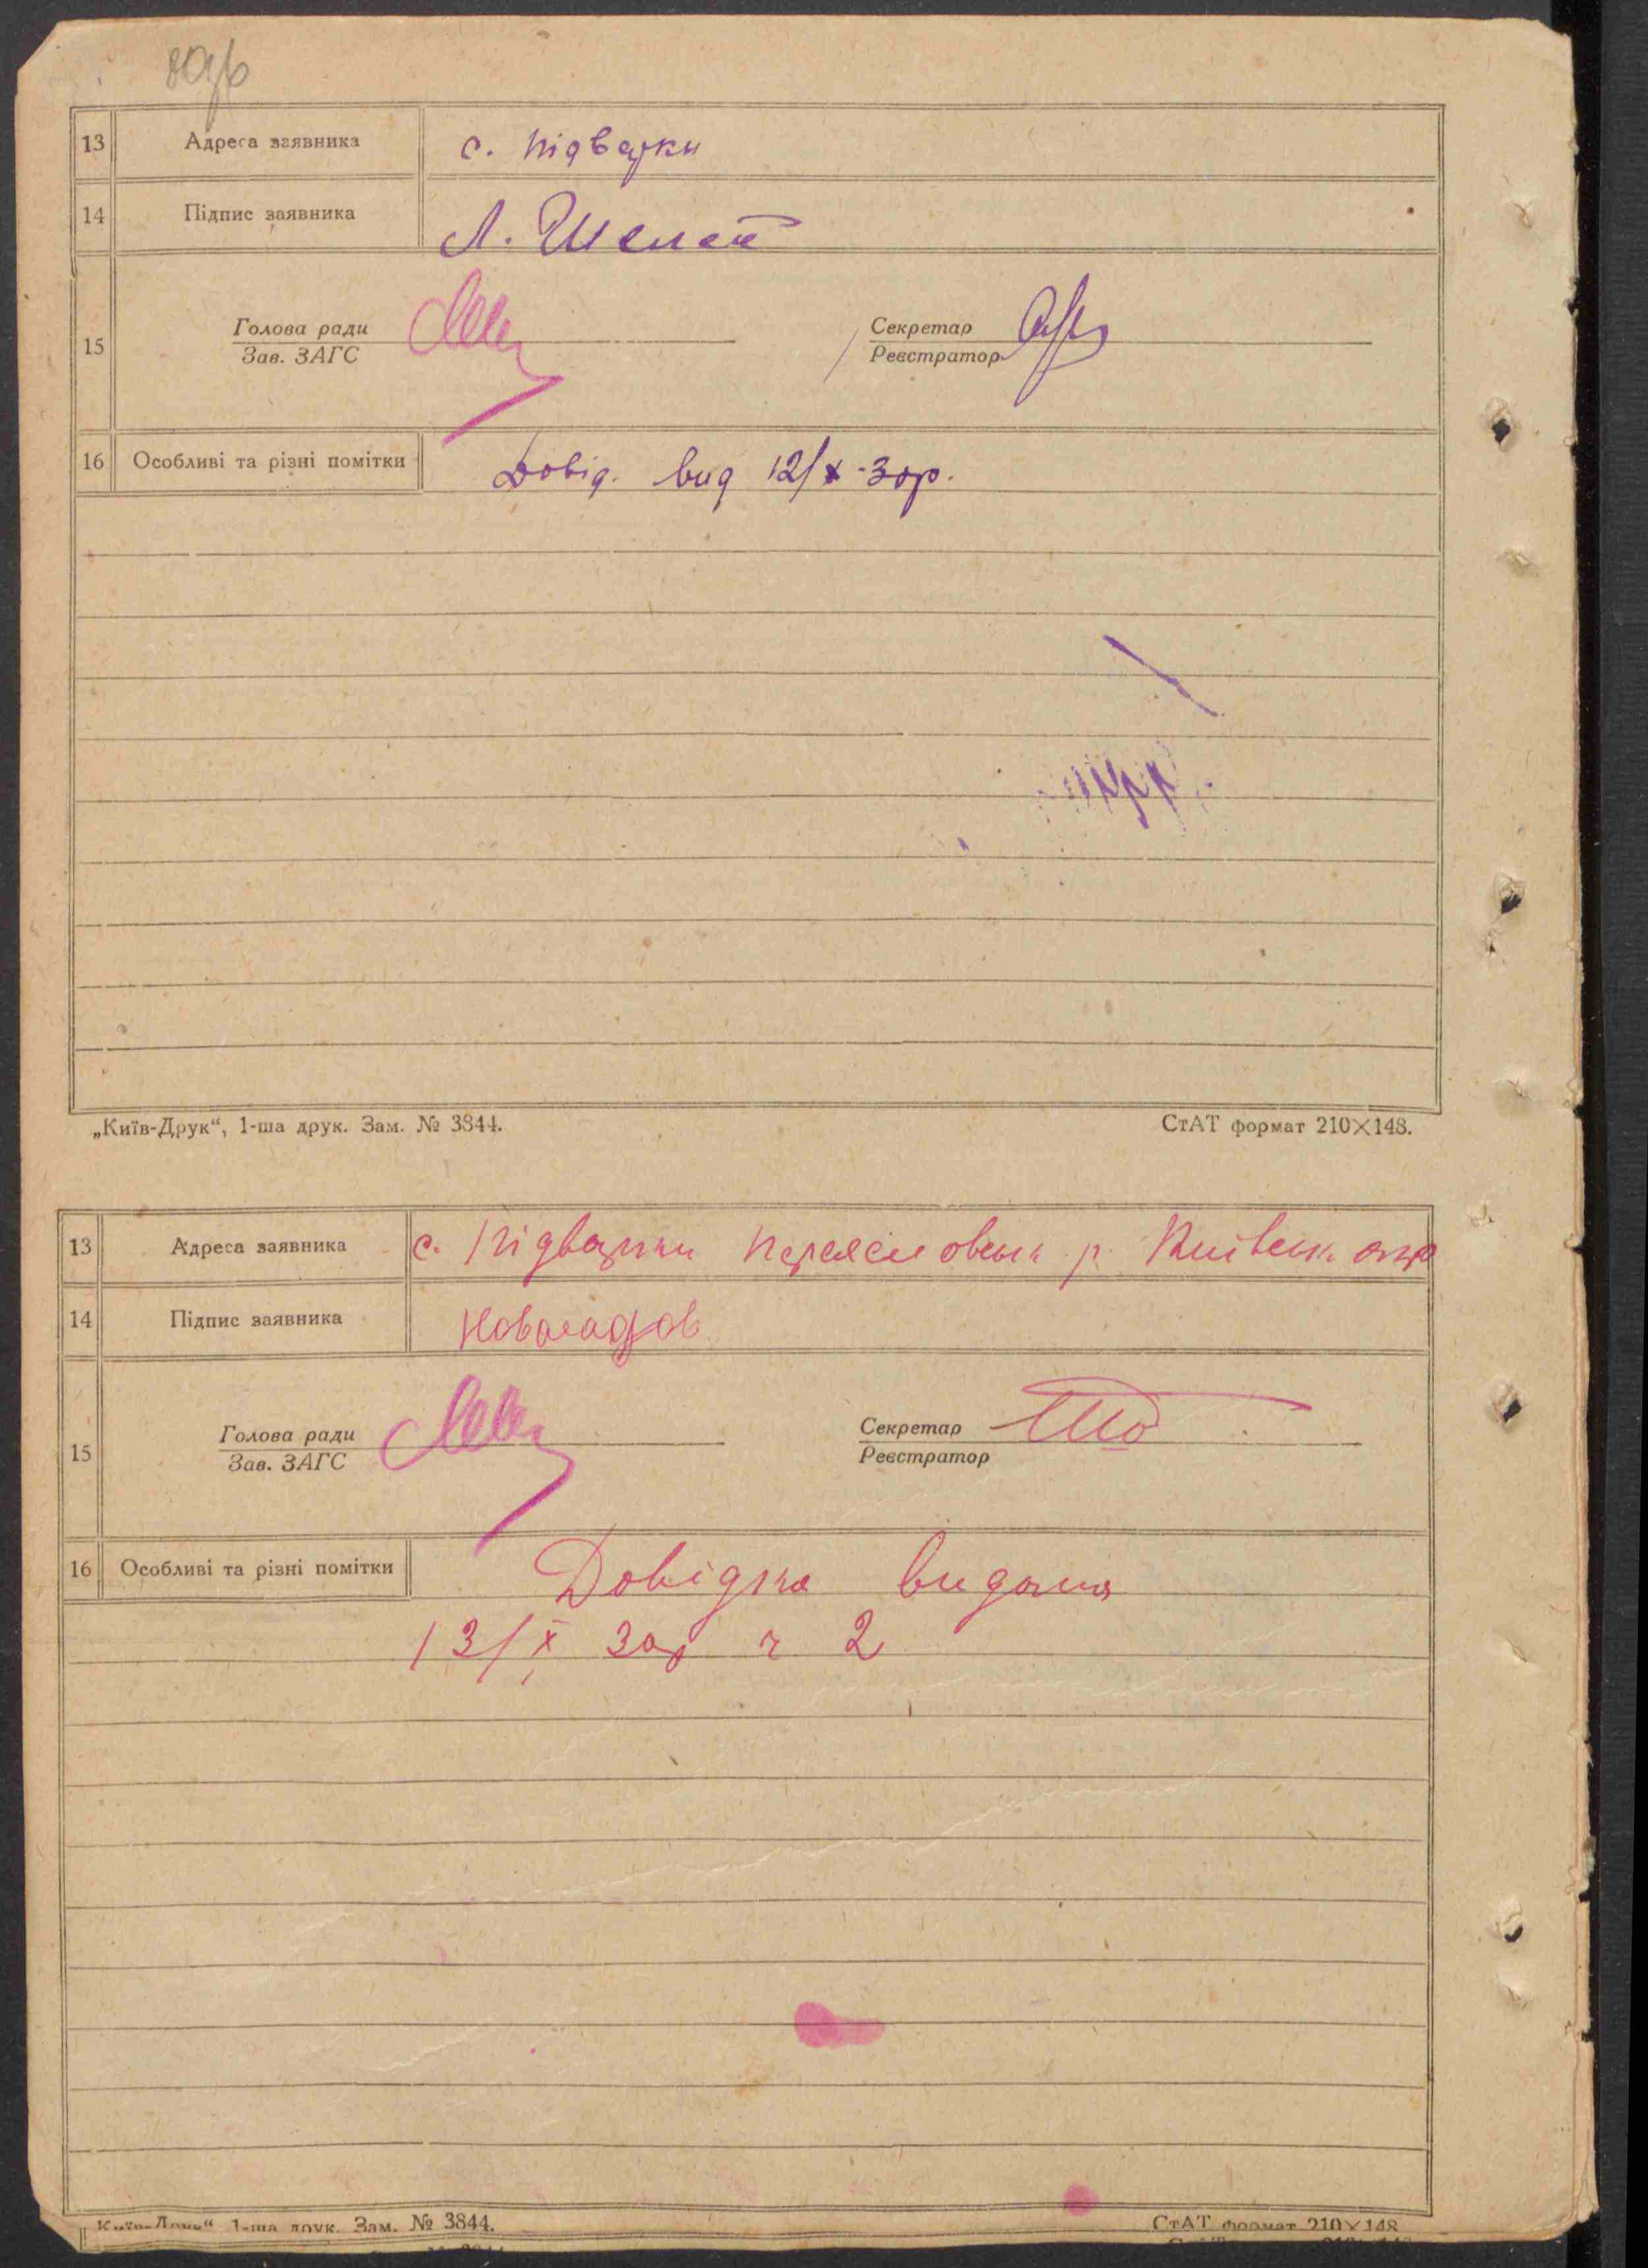 13 Адреса заявника с. Підварки
14 Підпис заявника Л. Шелест
15 Голова ради Секретар
Зав. ЗАГС Реєстратор
16 Особливі та різні помітки Довід. вид 12/X-30р.
„Київ-Друк“, 1-ша друк. Зам. № 3844. СтАТ формат 210×148.
13 Адреса заявника с. Підварки Переяславськ р. Київськ окр
14 Підпис заявника
15 Голова ради Секретар
Зав. ЗАГС Реєстратор
16 Особливі та різні помітки Довідка видана
13/X 30р ч 2
„Київ-Друк“ 1-ша друк. Зам. № 3844. СтАТ формат 210×148